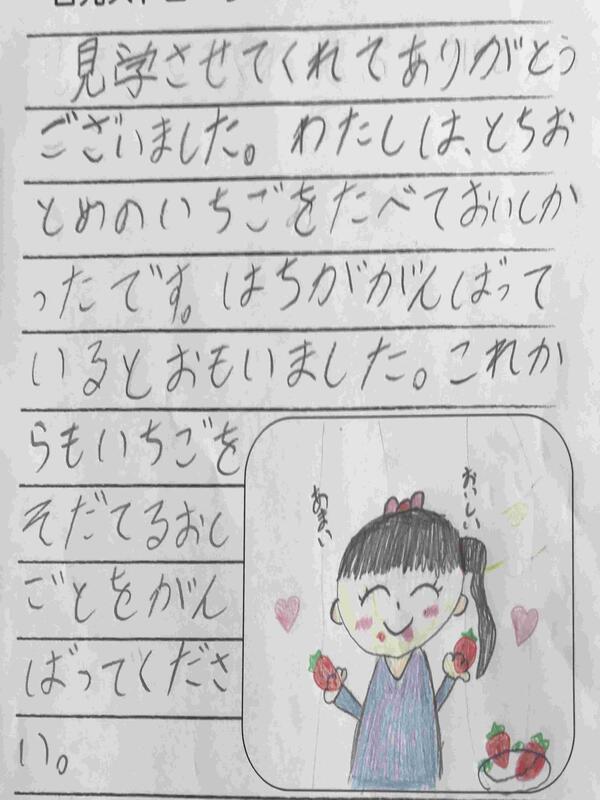 見学させてくれてありがとう
ございました。わたしは、とちお
とめのいちごをたべておいしか
ったです。はちががんばって
いるとおもいました。これか
らもいちごを
そだてるおし
ごとをがん
ばってくださ
い。
おいしい
あまい